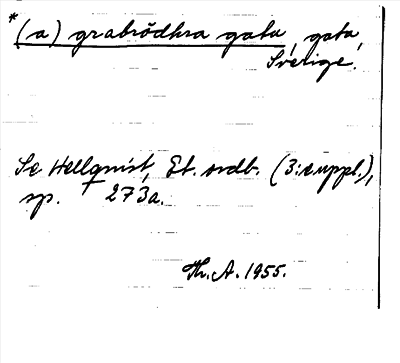 *(a) grabrödhra gata, gata,
Sverige.
Se Hellquist, Et. ordb. (3: suppl.),
sp. 273a.
Th. A. 1955.